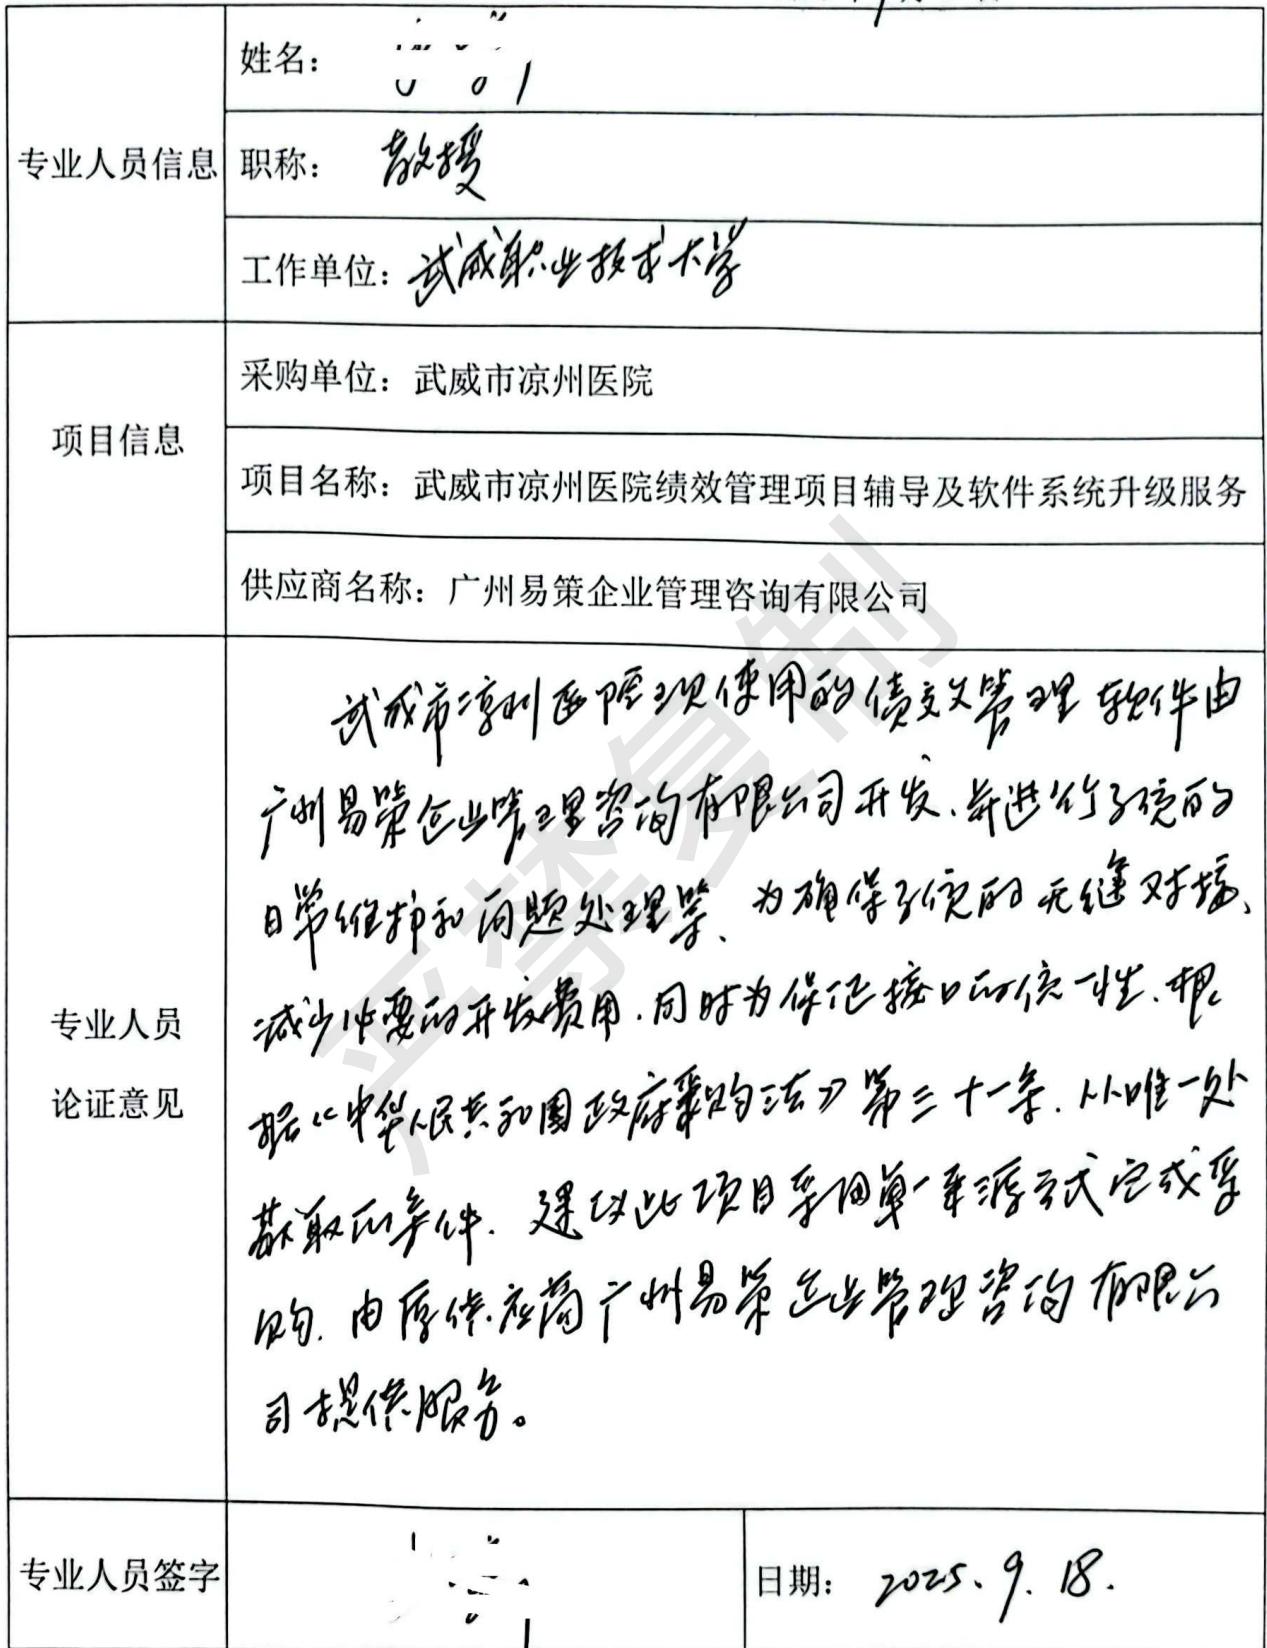 专业人员信息
姓名：
职称： 教授
工作单位：武威职业技术大学
项目信息
采购单位：武威市凉州医院
项目名称：武威市凉州医院绩效管理项目辅导及软件系统升级服务
供应商名称：广州易策企业管理咨询有限公司
专业人员
论证意见
武威市凉州医院现使用的绩效管理软件由
广州易策企业管理咨询有限公司开发、并进行系统的
日常维护和问题处理等、为确保系统的无缝对接、
减少必要的开发费用、同时为保证接口的统一性、根
据《中华人民共和国政府采购法》第三十一条、从唯一处
获取的条件、建议此项目采用单一来源方式完成采
购、由原供应商广州易策企业管理咨询有限公
司提供服务。
专业人员签字
日期： 2025.9.18.
严禁复制